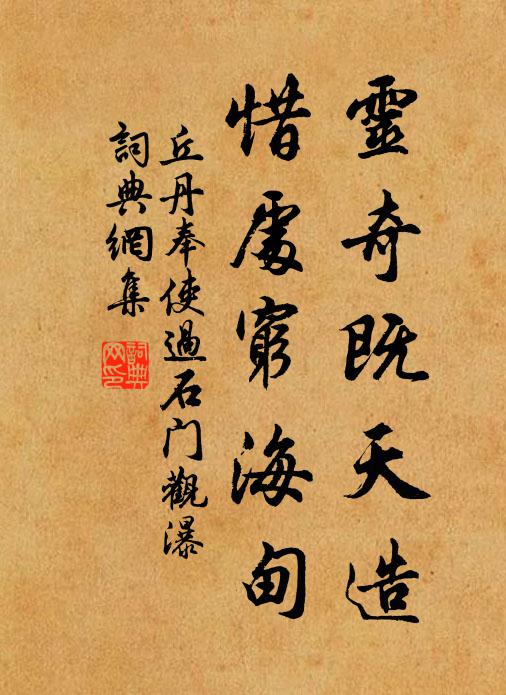 靈奇既天造
惜處窮海甸
丘丹奉使過石门觀瀑
詞典網集
詞典
网印